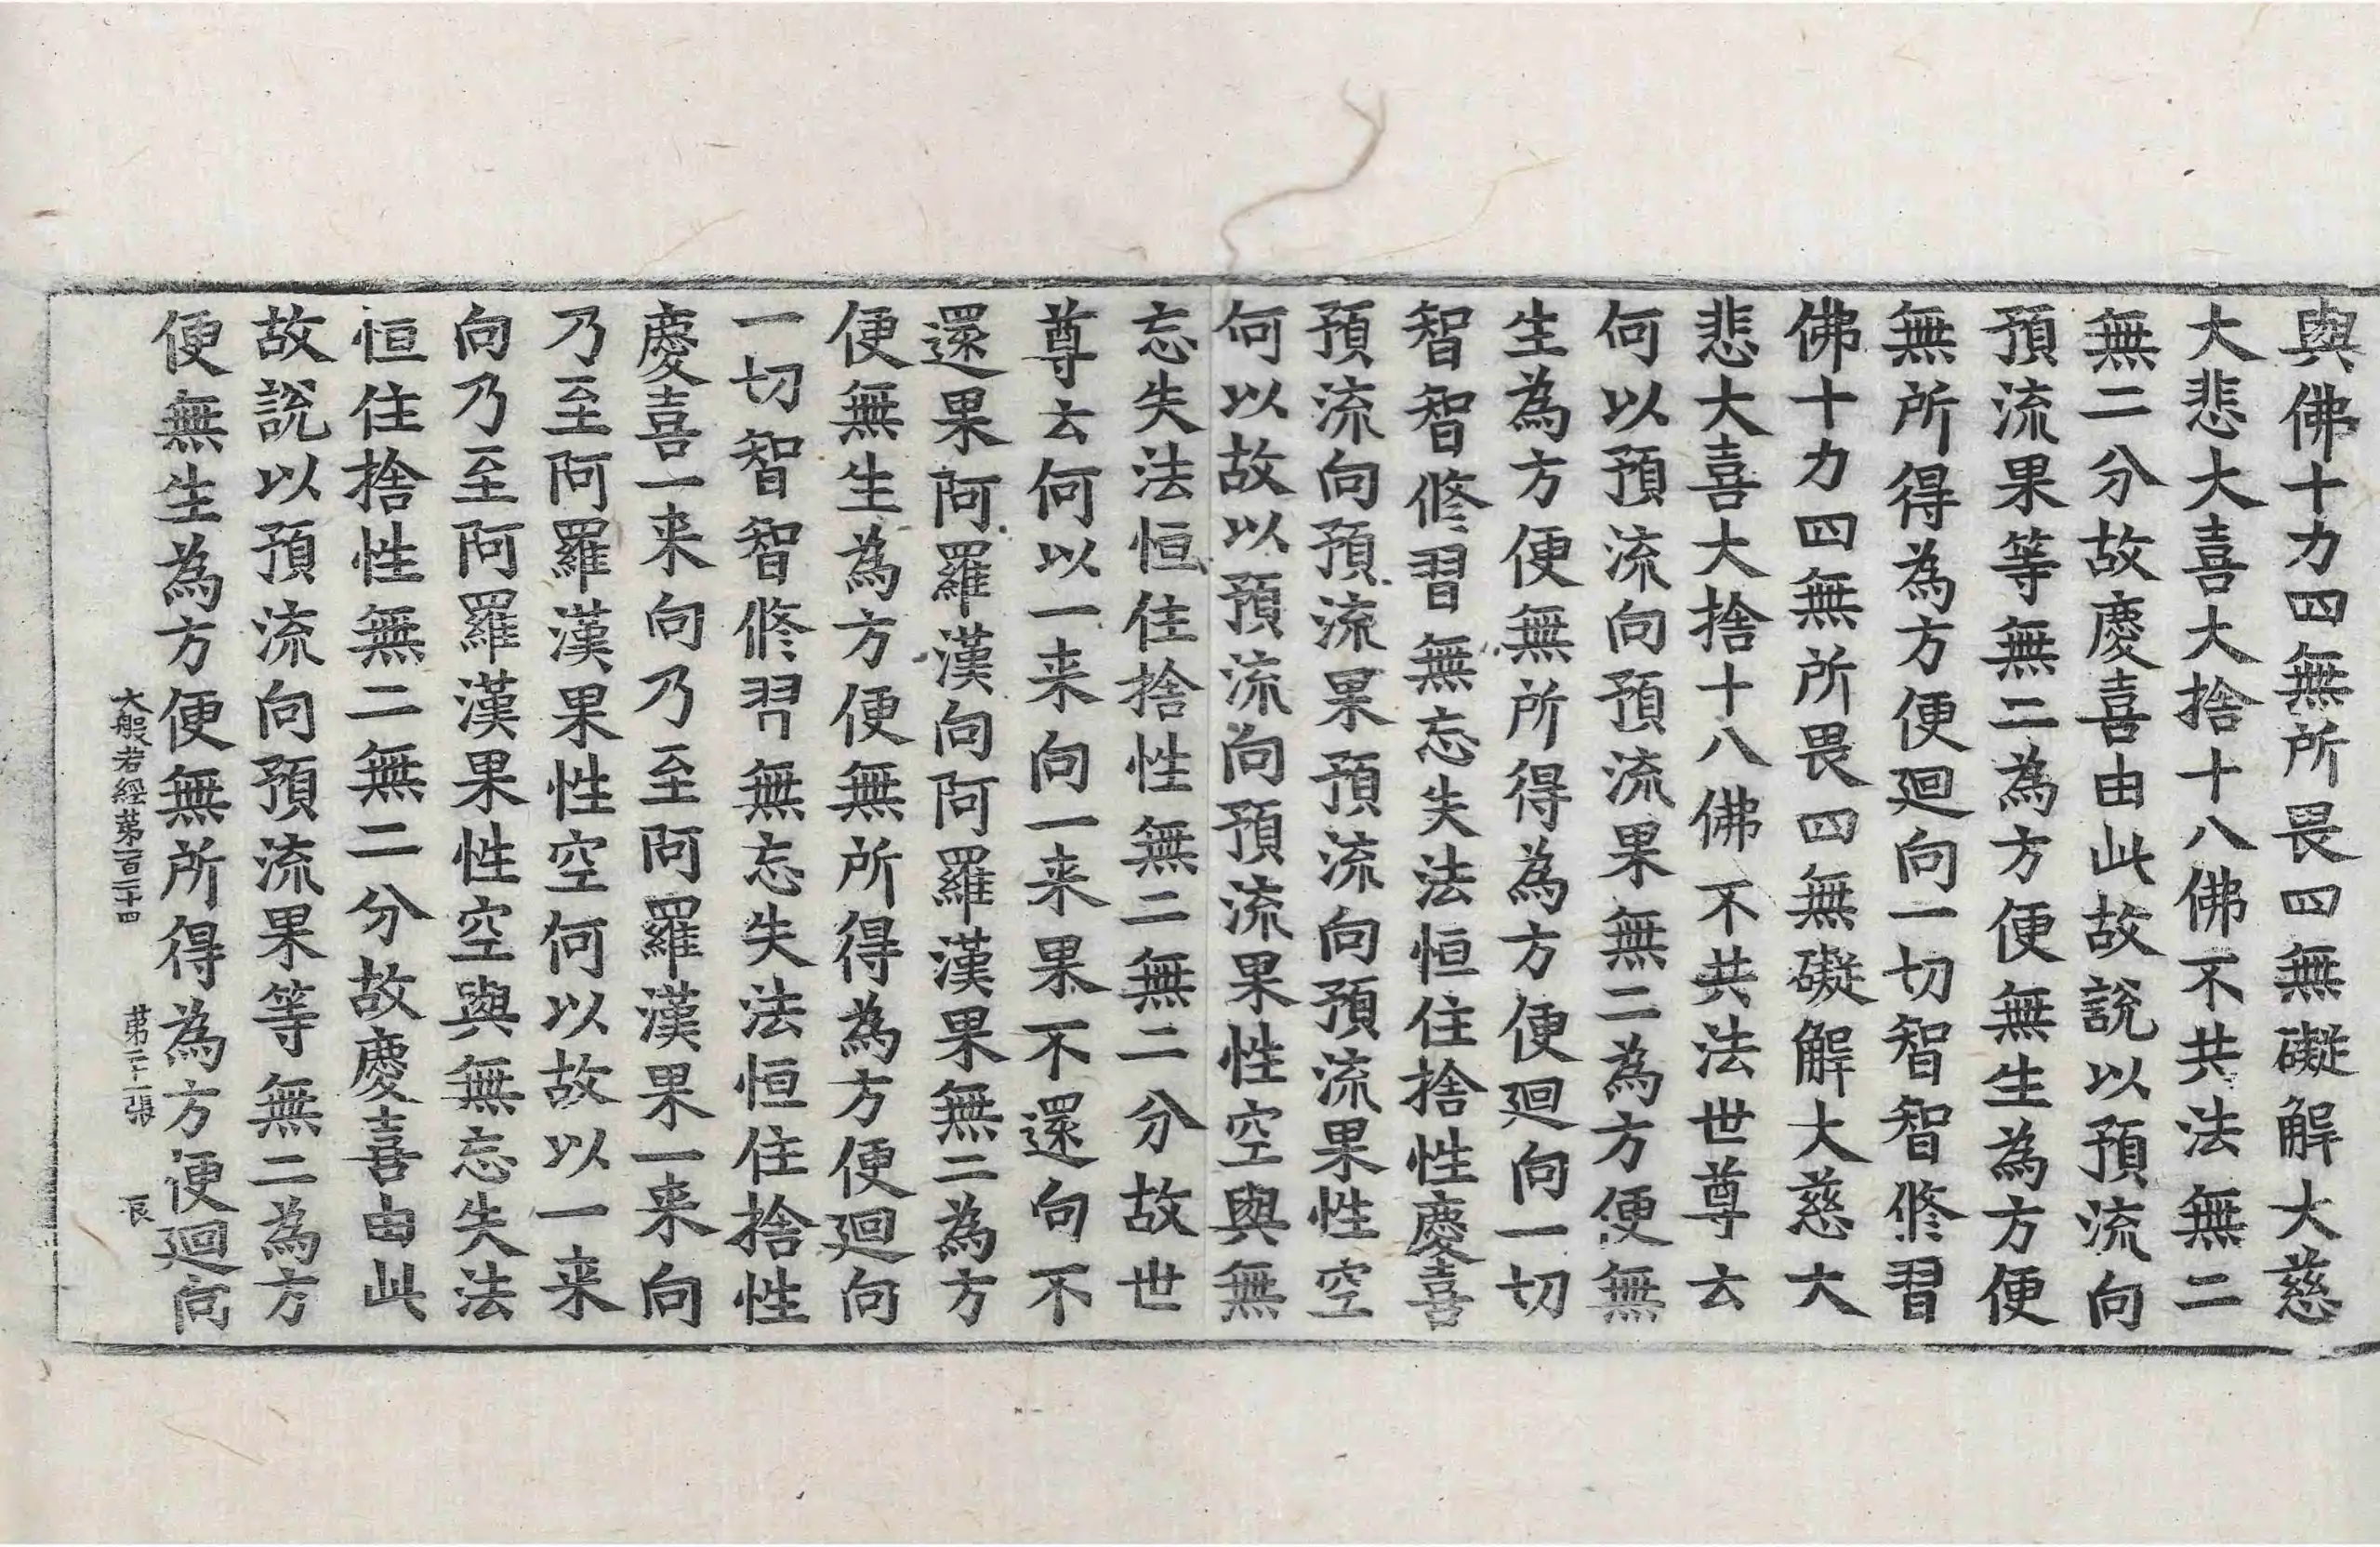 與佛十力四無所畏四無礙解大慈
大悲大喜大捨十八佛不共法無二
無二分故慶喜由此故說以預流向
預流果等無二為方便無生為方便
無所得為方便迴向一切智智修習
佛十力四無所畏四無礙解大慈大
悲大喜大捨十八佛不共法世尊云
何以預流向預流果無二為方便無
生為方便無所得為方便迴向一切
智智修習無忘失法恒住捨性慶喜
預流向預流果預流向預流果性空
何以故以預流向預流果性空與無
忘失法恒住捨性無二無二分故世
尊云何以一来向一来果不還向不
還果阿羅漢向阿羅漢果無二為方
便無生為方便無所得為方便迴向
一切智智修習無忘失法恒住捨性
慶喜一来向乃至阿羅漢果一来向
乃至阿羅漢果性空何以故以一来
向乃至阿羅漢果性空與無忘失法
恒住捨性無二無二分故慶喜由此
故說以預流向預流果等無二為方
便無生為方便無所得為方便迴向
大般若經苐一百二十四 苐二十一張 辰